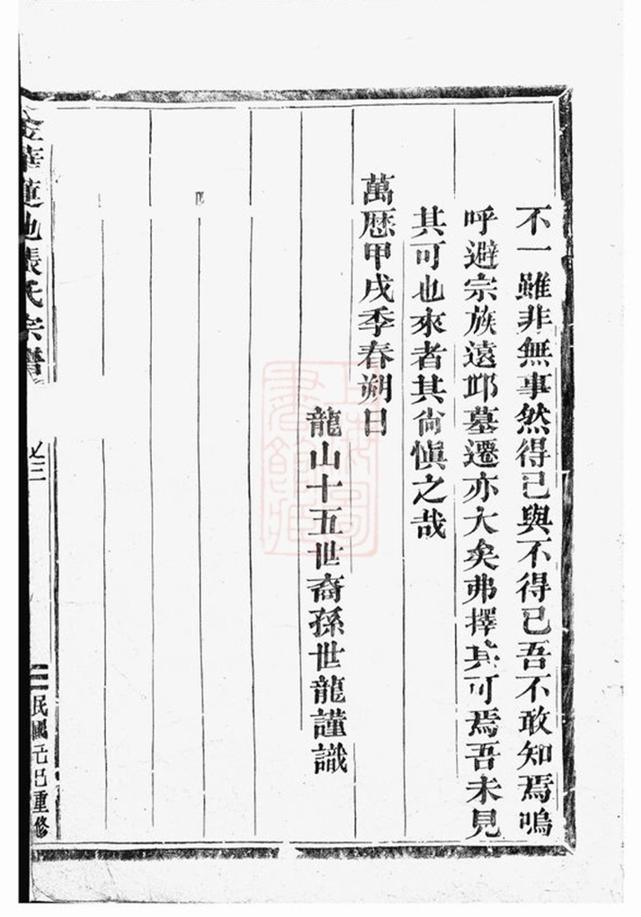 不一雖非無事然得已與不得已吾不敢知焉嗚
呼避宗族遠邱墓遷亦大矣弗擇其可焉吾未見
其可也來者其尙愼之哉
萬厯甲戌季春朔日
龍山十五世裔孫世龍謹識
金華蓮池張氏宗譜
卷三
民國己巳重修